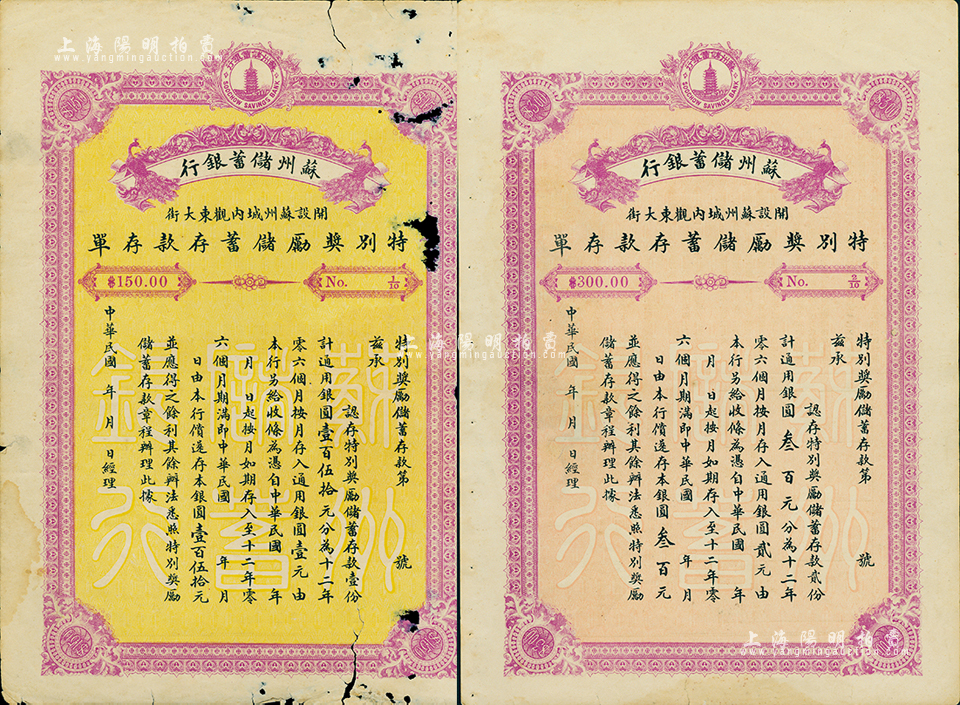 上海陽明拍賣
www.yangmingauction.com
蘇州儲蓄銀行
SOOCHOW SAVINGS BANK
蘇州儲蓄銀行
開設蘇州城内觀東大街
特別獎勵儲蓄存款存單
No. 1/10
150.00
特別獎勵儲蓄存款第 號
茲承
認存特別獎勵儲蓄存款壹份
計通用銀圓壹百伍拾元分為十二年
零六個月按月存入通用銀圓壹元由
本行另給收條為憑自中華民國 年
月 日起按月如期存入至十二年零
六個月期滿即中華民國 年 月
日由本行償還存本銀圓壹百伍拾元
並應得之餘利其餘辦法悉照特別獎勵
儲蓄存款章程辦理此據
中華民國 年 月 日經理
蘇州儲蓄銀行
150
SOOCHOW SAVINGS BANK
蘇州儲蓄銀行
開設蘇州城内觀東大街
特別獎勵儲蓄存款存單
No. 2/10
300.00
特別獎勵儲蓄存款第 號
茲承
認存特別獎勵儲蓄存款貳份
計通用銀圓叁百元分為十二年
零六個月按月存入通用銀圓貳元由
本行另給收條為憑自中華民國 年
月 日起按月如期存入至十二年零
六個月期滿即中華民國 年 月
日由本行償還存本銀圓叁百元
並應得之餘利其餘辦法悉照特別獎勵
儲蓄存款章程辦理此據
中華民國 年 月 日經理
蘇州儲蓄銀行
300
上海陽明拍賣
www.yangmingauction.com
上海陽明拍賣
www.yangmingauction.com